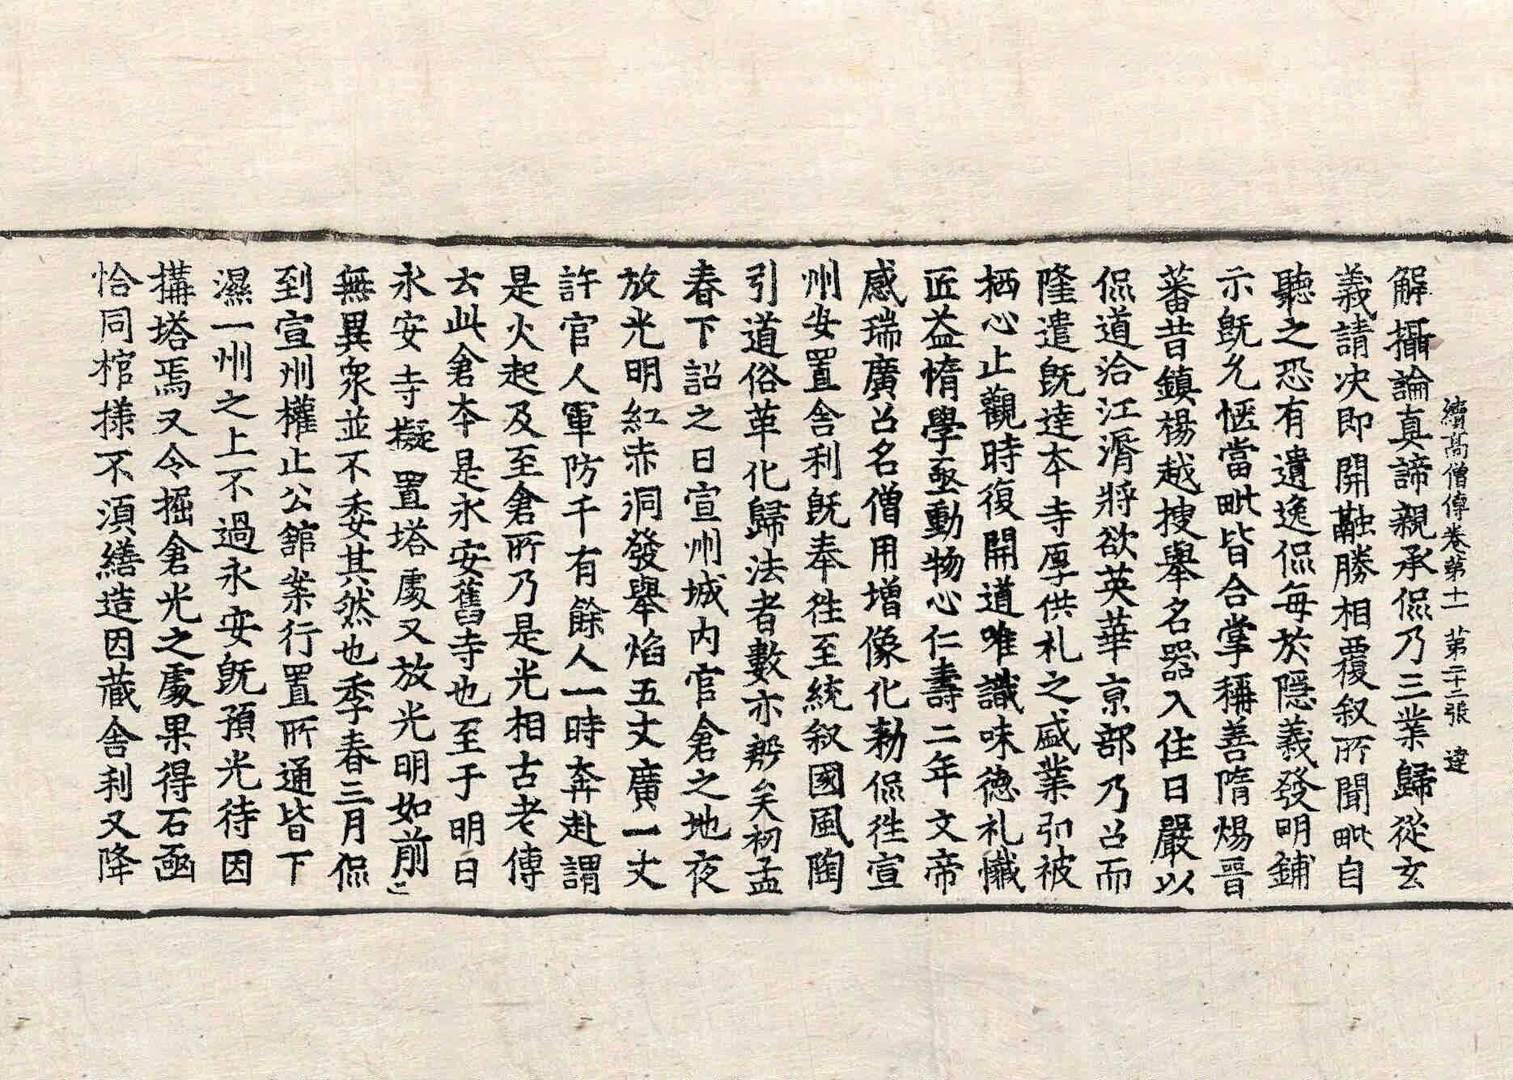 續高僧傳卷第十一 第二十二張 達
解攝論真諦親承侃乃三業歸從玄
義請決即開融勝相覆叙所聞毗自
聽之恐有遺逸侃每於隱義發明鋪
示旣允愜當毗皆合掌稱善隋煬晉
蕃昔鎮楊越搜舉名器入住日嚴以
侃道洽江漘將欲英華亰部乃召而
隆遣旣達本寺厚供礼之盛業引被
栖心止觀時復開道唯識味德礼懺
匠益惰學亟動物心仁壽二年文帝
感瑞廣召名僧用增像化勑侃徃宣
州安置舍利旣奉徃至統叙國風陶
引道俗革化歸法者數亦斾矣初孟
春下詔之日宣州城内官倉之地夜
放光明紅赤洞發舉焰五丈廣一丈
許官人軍防千有餘人一時奔赴謂
是火起及至倉所乃是光相古老傳
云此倉夲是永安舊寺也至于明日
永安寺擬置塔處又放光明如前
無異衆並不委其然也季春三月侃
到宣州權止公舘案行置所通皆下
濕一州之上不過永安旣預光待因
搆塔焉又令掘倉光之處果得石函
恰同棺樣不須繕造因藏舍利又降